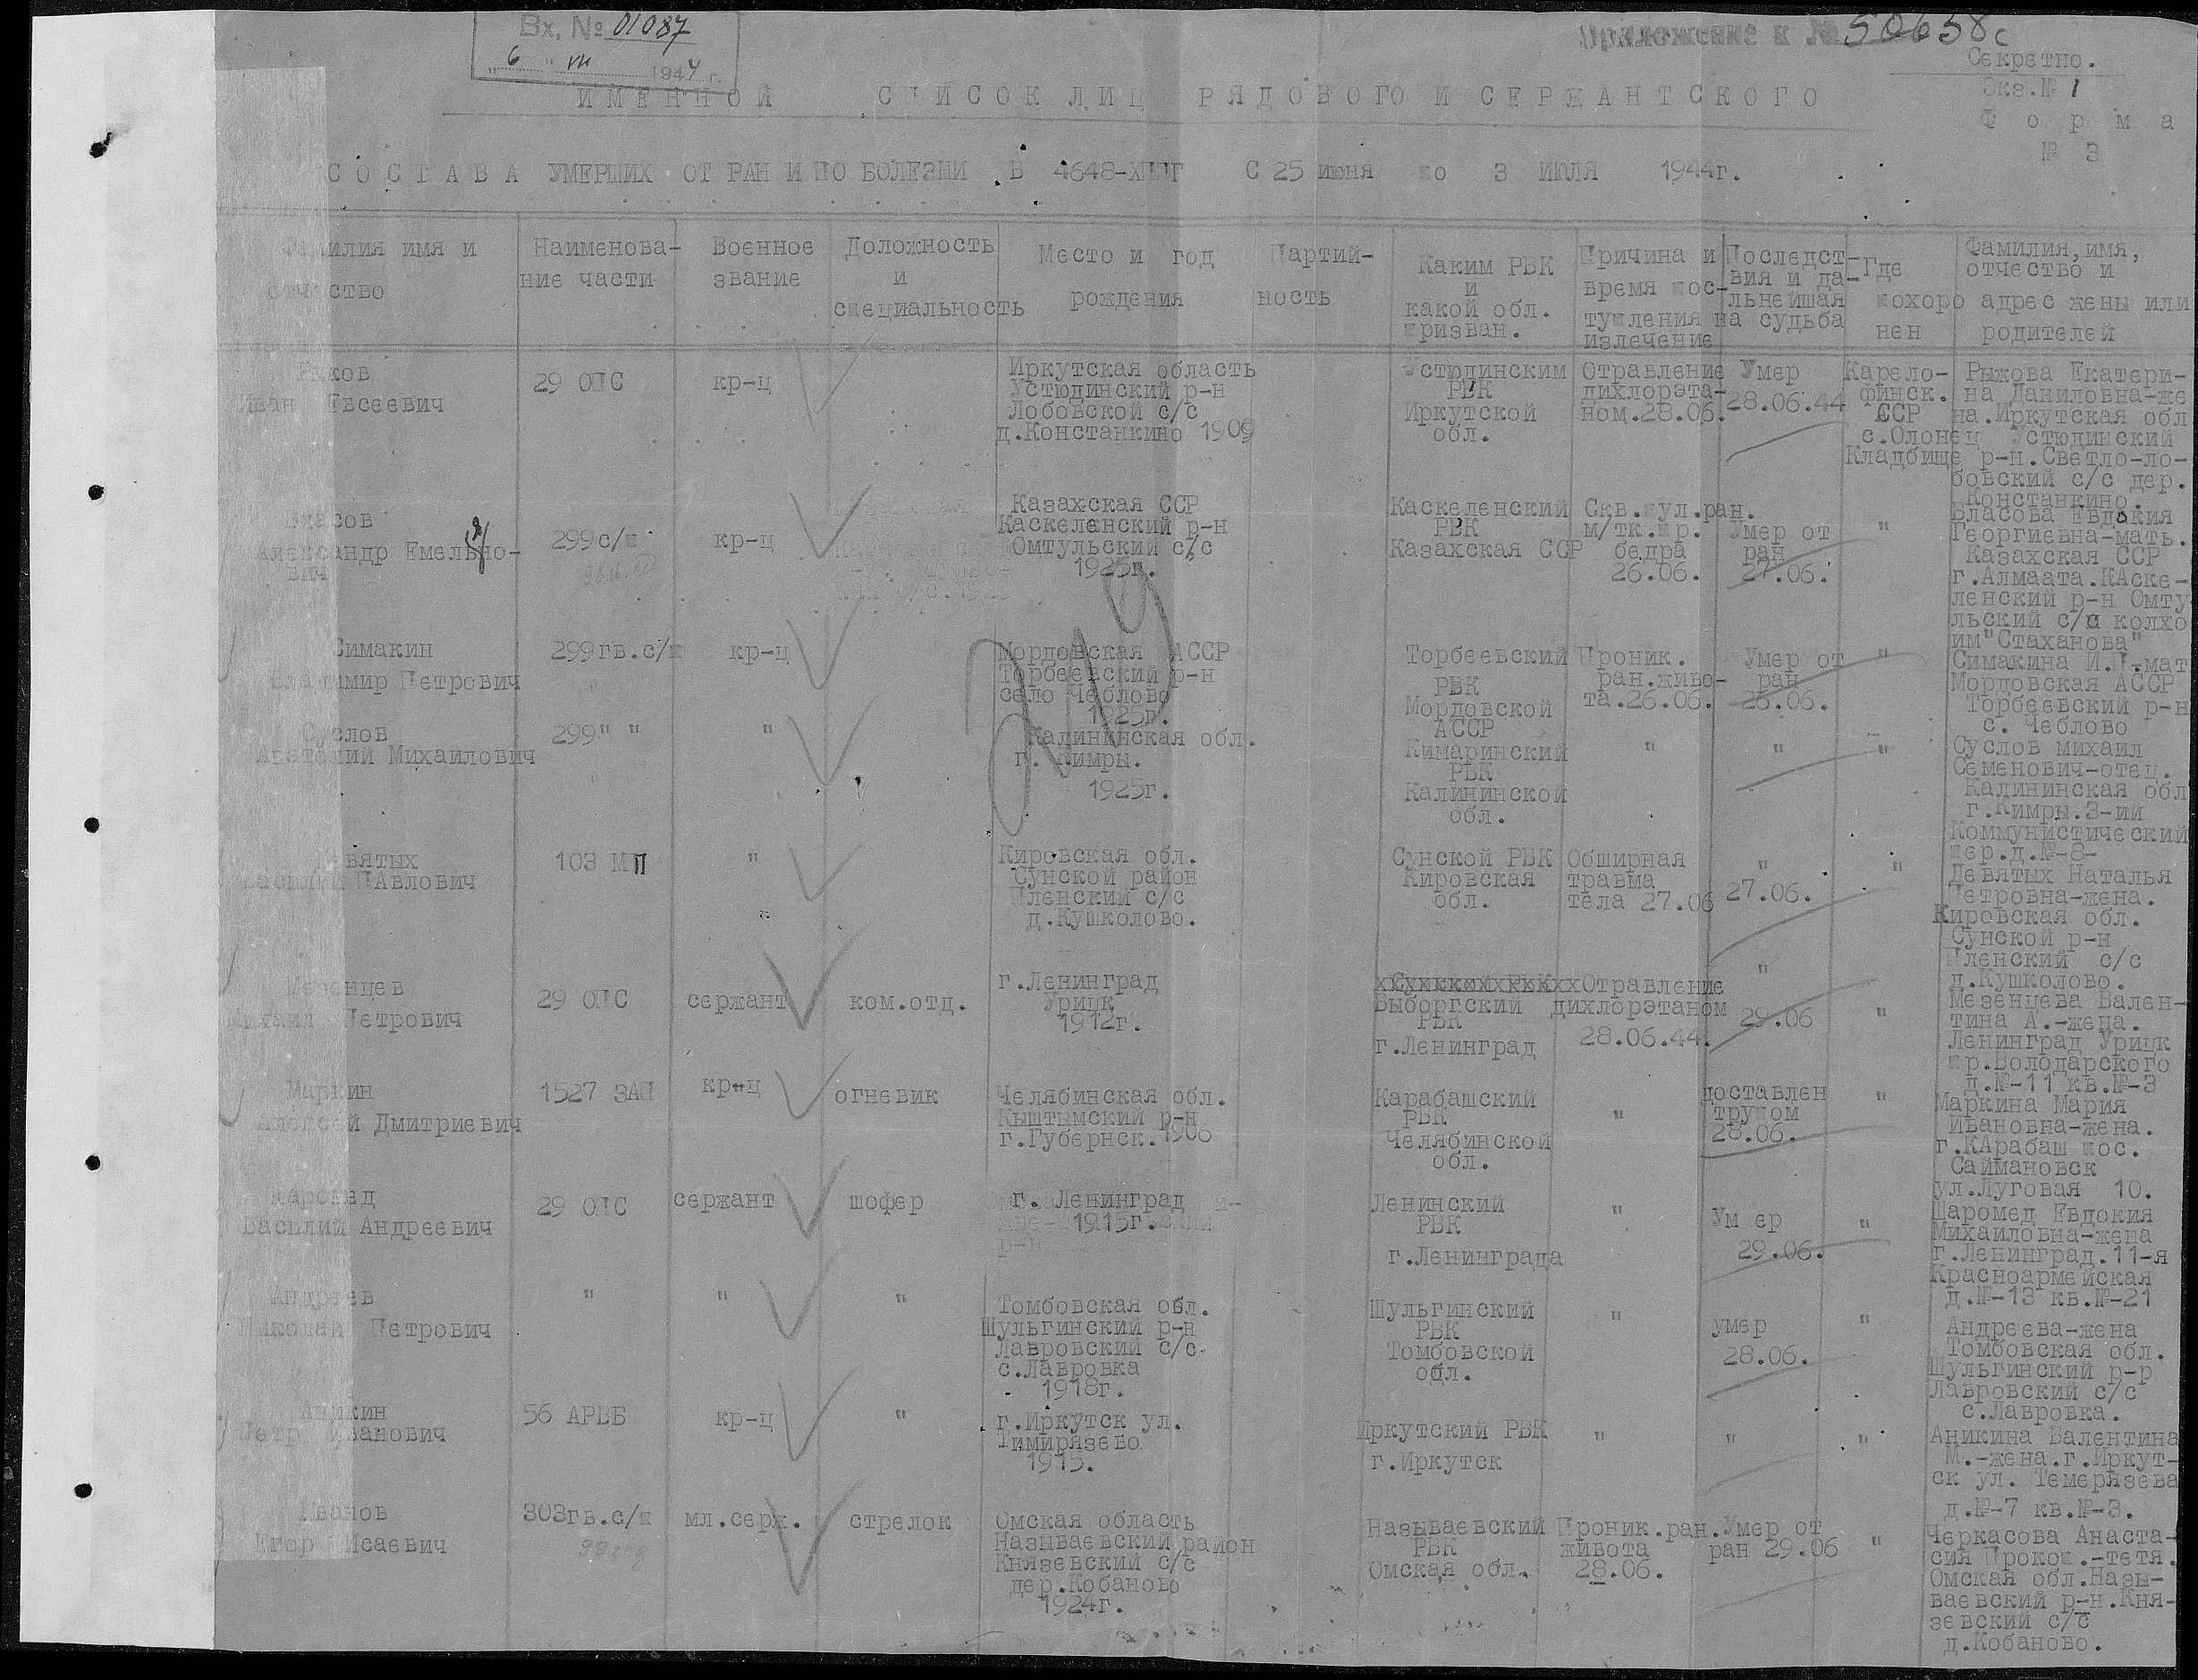 Вх. № 01087
"6" VII 1944 г.
Приложение к № 50658с
Секретно.
Экз.№ 1
Форма
№ 3
ИМЕННОЙ СПИСОК ЛИЦ РЯДОВОГО И СЕРЖАНТСКОГО
СОСТАВА УМЕРШИХ ОТ РАН И ПО БОЛЕЗНИ В 4648-ХППГ С 25 июня по 3 ИЮЛЯ 1944г.
Фамилия имя и
отчество
Наименова-
ние части
Военное
звание
Доложность
и
специальность
Место и год
рождения
Партий-
ность
Каким РВК
и
какой обл.
призван.
Причина и
время пос-
тупления на
излечение
Последст-
вия и да-
льнейшая
судьба
Где
похоро
нен
Фамилия,имя,
отчество и
адрес жены или
родителей
Рыков
Иван Евсеевич
29 ОПС
кр-ц
Иркутская область
Устюдинский р-н
Лобовской с/с
д.Констанкино 1909
Устюдинским
РВК
Иркутской
обл.
Отравление
дихлорэта-
ном.28.06.
Умер
28.06.44
Карело-
финск.
ССР
с.Олонец
Кладбище
Рыкова Екатери-
на Даниловна-же
на.Иркутская обл
Устюдинский
р-н.Светло-ло-
бовский с/с дер.
Констанкино.
Власов
Александр Емельяно-
вич
299с/п
кр-ц
Казахская ССР
Каскеленский р-н
Омтульский с/с
1925г.
Каскеленский
РВК
Казахская ССР
Скв.пул.ран.
м/тк.пр.
бедра
26.06.
Умер от
ран
27.06.
"
Власова Евдокия
Георгиевна-мать.
Казахская ССР
г.Алмаата.КАске-
ленский р-н Омту
льский с/с колхо
им"Стаханова"
Симакин
Владимир Петрович
299гв.с/п
кр-ц
Мордовская АССР
Торбеевский р-н
село Чеблово
1925г.
Торбеевский
РВК
Мордовской
АССР
Проник.
ран.живо-
та.26.06.
Умер от
ран
26.06.
"
Симакина И.П-мат
Мордовская АССР
Торбеевский р-н
с. Чеблово
Суслов
Анатолий Михаилович
299" "
"
Калининская обл.
г. Кимры.
1925г.
Кимаринский
РВК
Калининской
обл.
"
"
"
Суслов михаил
Семенович-отец.
Калининская обл
г.Кимры.3-ий
Коммунистический
пер.д.№-8-
Девятых
Василий ПАвлович
103 МП
"
Кировская обл.
Сунской район
Пленский с/с
д.Кушколово.
Сунской РВК
Кировская
обл.
Обширная
травма
тела 27.06
"
27.06.
"
Девятых Наталья
Петровна-жена.
Кировская обл.
Сунской р-н
Пленский с/с
д.Кушколово.
Мезенцев
Михаил Петрович
29 ОПС
сержант
ком.отд.
г.Ленинград
Урицк
1912г.
Выборгский
РВК
г.Ленинград
Отравление
дихлорэтаном
28.06.44.
"
29.06
"
Мезенцева Вален-
тина А.-жена.
Ленинград Урицк
пр.Володарского
д.№-11 кв.№-3
Маркин
Алексей Дмитриевич
1527 ЗАП
кр-ц
огневик
Челябинская обл.
Кыштымский р-н
г.Губернск.1906
Карабашский
РВК
Челябинской
обл.
"
доставлен
трупом
28.06.
"
Маркина Мария
Ивановна-жена.
г.КАрабаш пос.
Саймановск
ул.Луговая 10.
Шаромед
Василий Андреевич
29 ОПС
сержант
шофер
г. Ленинград
1915г.
Ленинский
РВК
г.Ленинграда
"
Ум ер
29.06.
"
Шаромед Евдокия
Михаиловна-жена
г.Ленинград.11-я
Красноармейская
д.№-13 кв.№-21
Андреев
Николай Петрович
"
"
"
Томбовская обл.
Шульгинский р-н
Лавровский с/с.
с.Лавровка
1918г.
Шульгинский
РВК
Томбовской
обл.
"
умер
28.06.
"
Андреева-жена
Томбовская обл.
Шульгинский р-р
Лавровский с/с
с.Лавровка.
Аникин
Петр Иванович
56 АРВБ
кр-ц
"
г.Иркутск ул.
Тимирязево
1915.
Иркутский РВК
г.Иркутск
"
"
"
Аникина Валентина
М.-жена.г.Иркут-
ск ул. Темерязева
д.№-7 кв.№-3.
Иванов
Егор Исаевич
303гв.с/п
мл.серж.
стрелок
Омская область
Называевский район
Князевский с/с
дер.Кобаново
1924г.
Называевский
РВК
Омская обл.
Проник.ран.
живота
28.06.
Умер от
ран 29.06
"
Черкасова Анаста-
сия Прокоп.-тетя.
Омская обл.Назы-
ваевский р-н.Кня-
зевский с/с
д.Кобаново.